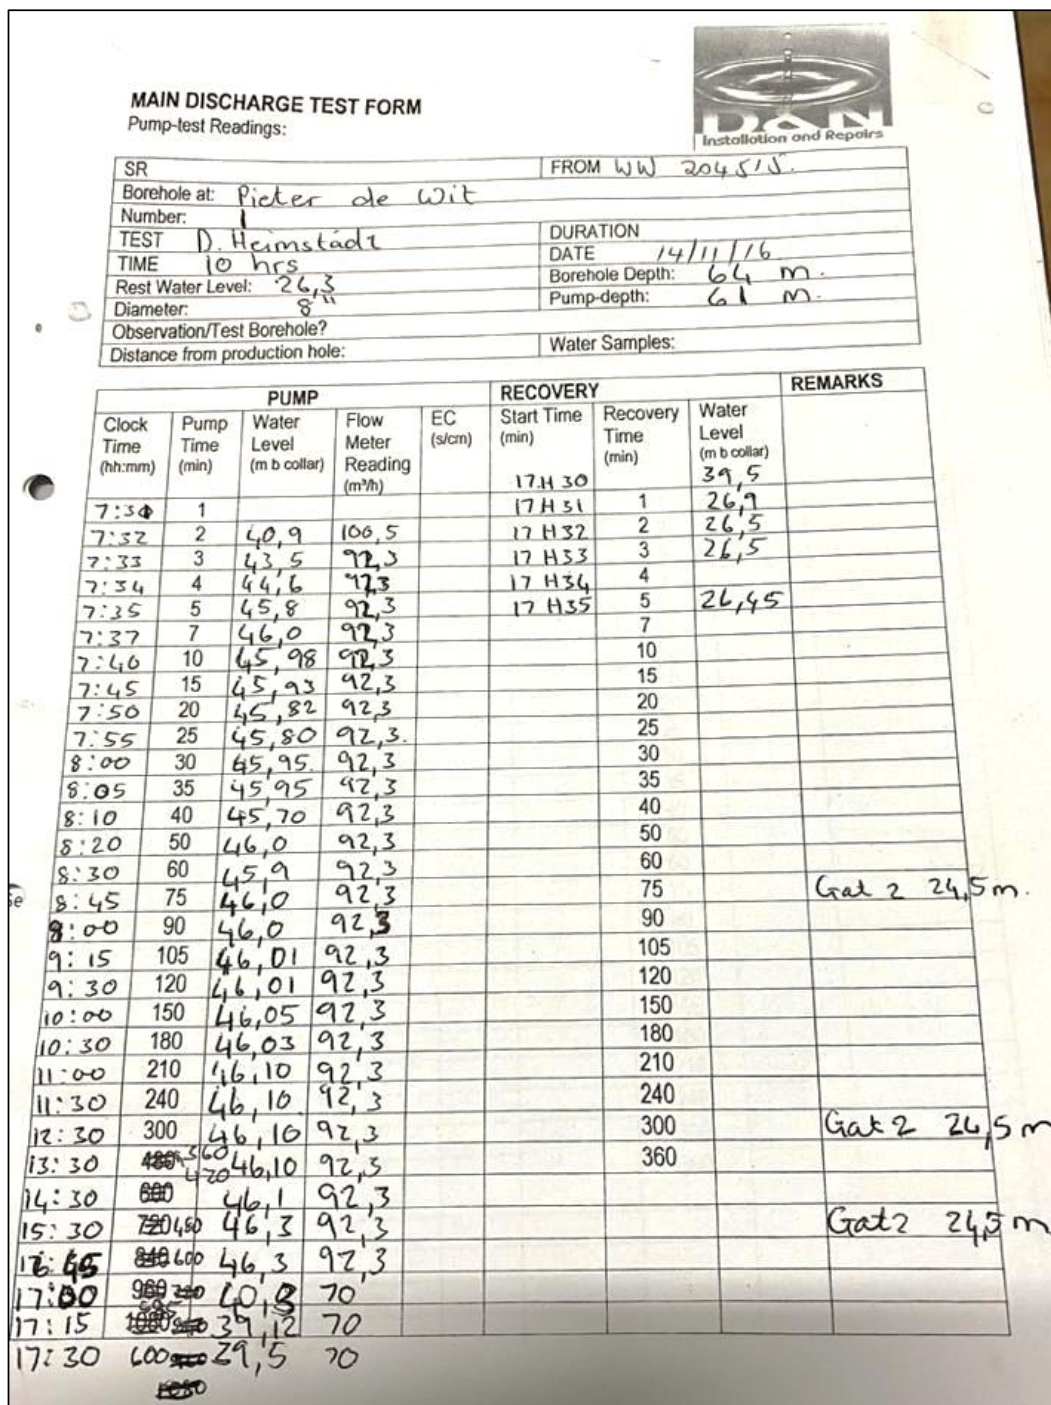 D&N
Installation and Repairs
MAIN DISCHARGE TEST FORM
Pump-test Readings:
SR FROM WW 204515.
Borehole at: Pieter de Wit
Number: 1
TEST D. Heimstädt DURATION
TIME 10 hrs DATE 14/11/16
Rest Water Level: 26,3 Borehole Depth: 64 m.
Diameter: 8" Pump-depth: 61 m.
Observation/Test Borehole?
Distance from production hole: Water Samples:
PUMP RECOVERY REMARKS
Clock Time (hh:mm) Pump Time (min) Water Level (m b collar) Flow Meter Reading (m³/h) EC (s/cm) Start Time (min) Recovery Time (min) Water Level (m b collar)
17H30 39,5
7:31 1 17H31 1 26,9
7:32 2 40,9 100,5 17H32 2 26,5
7:33 3 43,5 92,3 17H33 3 26,5
7:34 4 44,6 92,3 17H34 4
7:35 5 45,8 92,3 17H35 5 26,45
7:37 7 46,0 92,3 7
7:40 10 45,98 92,3 10
7:45 15 45,93 92,3 15
7:50 20 45,82 92,3 20
7:55 25 45,80 92,3. 25
8:00 30 45,95. 92,3 30
8:05 35 45,95 92,3 35
8:10 40 45,70 92,3 40
8:20 50 46,0 92,3 50
8:30 60 45,9 92,3 60
8:45 75 46,0 92,3 75 Gat 2 24,5m.
:00 90 46,0 92,3 90
9:15 105 46,01 92,3 105
9:30 120 46,01 92,3 120
10:00 150 46,05 92,3 150
10:30 180 46,03 92,3 180
11:00 210 46,10 92,3 210
11:30 240 46,10 92,3 240
12:30 300 46,10 92,3 300 Gat 2 24,5m
13:30 480 360 46,10 92,3 360
14:30 600 420 46,1 92,3
15:30 720 480 46,3 92,3 Gat 2 24,5m
840 600 46,3 92,3
17:00 960 40,8 70
17:15 1080 39,12 70
17:30 600 39,5 70